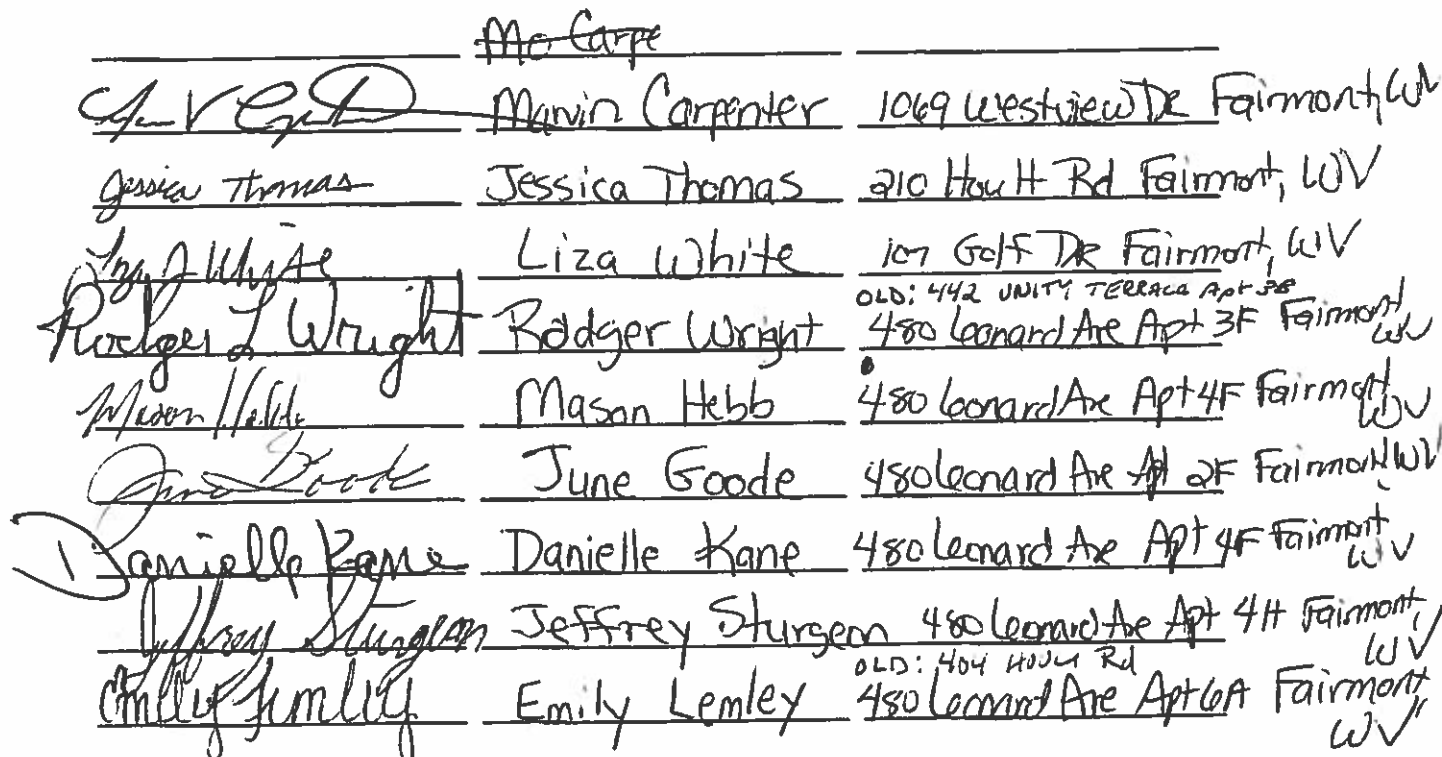 Mo Carpe
Marvin Carpenter 1069 Westview DR Fairmont, WV
Jessica Thomas Jessica Thomas 210 Hoult Rd Fairmont, WV
Liza J White Liza White 107 Golf DR Fairmont, WV
OLD: 442 UNITY TERRACE Apt 38
Rodger L Wright Rodger Wright 480 Leonard Ave Apt 3F Fairmont, WV
Mason Hebb Mason Hebb 480 Leonard Ave Apt 4F Fairmont, WV
June Goode June Goode 480 Leonard Ave Apt 2F Fairmont WV
Danielle Kane Danielle Kane 480 Leonard Ave Apt 4F Fairmont, WV
Jeffrey Sturgeon Jeffrey Sturgeon 480 Leonard Ave Apt 4H Fairmont, WV
OLD: 404 Rd
Emily Lemley Emily Lemley 480 Leonard Ave Apt 6A Fairmont WV